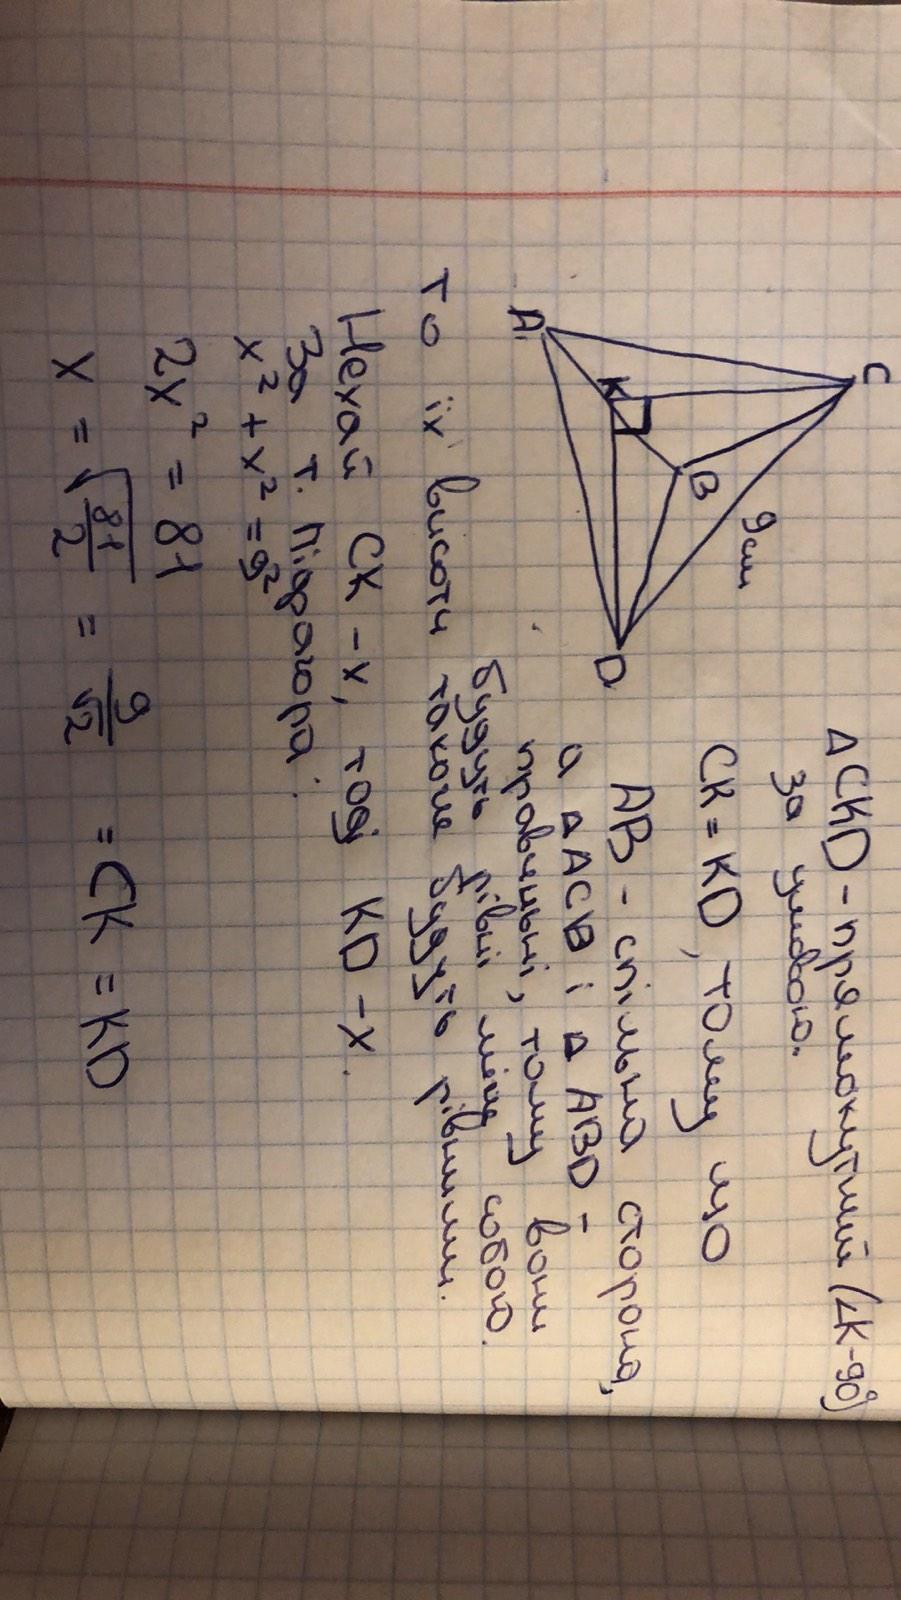 C
9см
A
K
B
D
ΔCKD - прямокутний (∠K-90°)
за умовою.
CK = KD, тому що
AB - спільна сторона,
а ΔACB і ΔABD -
правильні, тому вони
будуть рівні між собою.
то їх висоти також будуть рівними.
Нехай CK - x, тоді KD - x.
За т. Піфагора:
x² + x² = 9²
2x² = 81
x = √(81/2) = 9/√2 = CK = KD